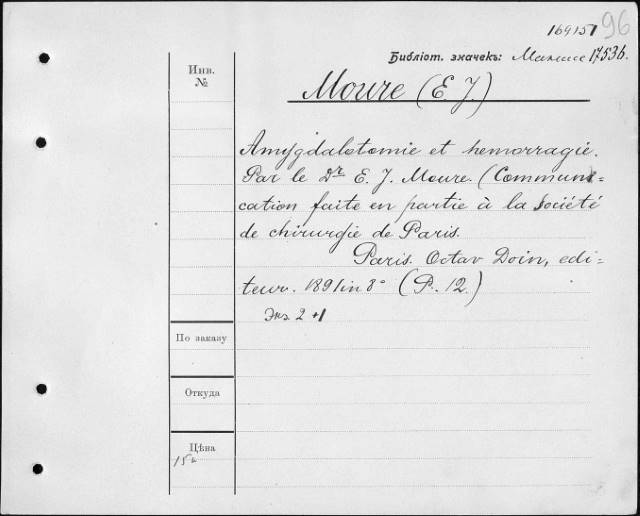 169151 96
Библіот. значекъ: 17536.
Инв.
№
Moure (E. J.)
Amygdalotomie et hemorragie.
Par le Dr E. J. Moure. (Communi=
cation faite en partie à la Société
de chirurgie de Paris.
Paris. Octav Doin, edi=
teur. 1891 in 8° (P. 12.)
Экз. 2 +1
По заказу
Откуда
Цѣна
15к